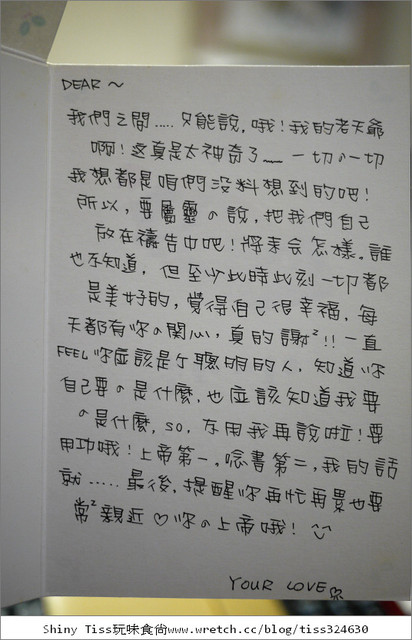 DEAR ~
我們之間.....只能說,哦!我的老天爺
啊!这真是太神奇了~~ 一切の一切
我想都是咱們没料想到的吧!
所以,要屬靈の說,把我們自己
放在禱告中吧!將來会怎樣,誰
也不知道,但至少此時此刻一切都
是美好的,覺得自己很幸福,每
天都有你の関心,真的謝²!!一直
FEEL 你应該是个聰明的人,知道你
自己要の是什麼,也应該知道我要
の是什麼,SO,不用我再說啦!要
用功哦!上帝第一,唸書第二,我的話
就.....最後,提醒你再忙再累也要
常²親近♡你の上帝哦!
YOUR LOVE
Shiny Tiss玩味食尚www.wretch.cc/blog/tiss324630